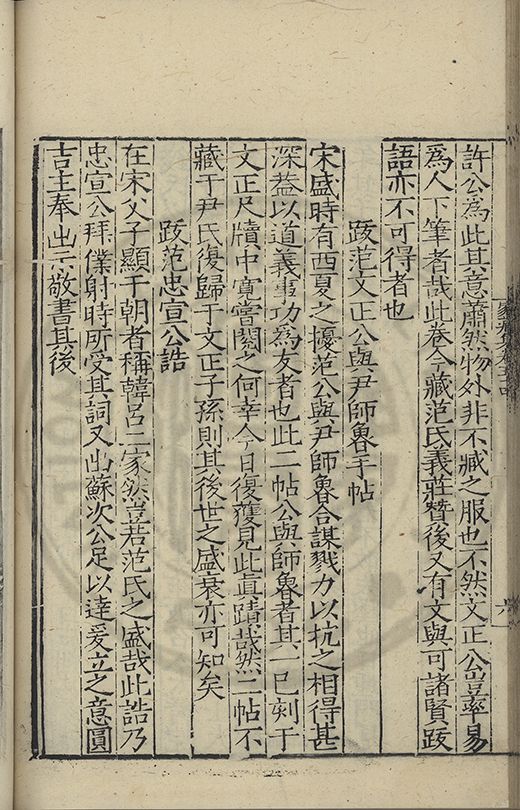 許公為此其意蕭然物外非不臧之服也不然文正公豈率易
為人下筆者哉此卷今藏范氏義莊贊後又有文與可諸賢跋
語亦不可得者也
跋范文正公與尹師魯手帖
宋盛時有西夏之擾范公與尹師魯合謀戮力以抗之相得甚
深葢以道義事功為友者也此二帖公與師魯者其一已刻于
文正尺牘中寬嘗閱之何幸今日復獲見此眞蹟哉然二帖不
藏于尹氏復歸于文正子孫則其後世之盛衰亦可知矣
跋范忠宣公誥
在宋父子顯于朝者稱韓呂二家然豈若范氏之盛哉此誥乃
忠宣公拜僕射時所受其詞又出蘇次公足以達爰立之意圓
吉主奉出示敬書其後